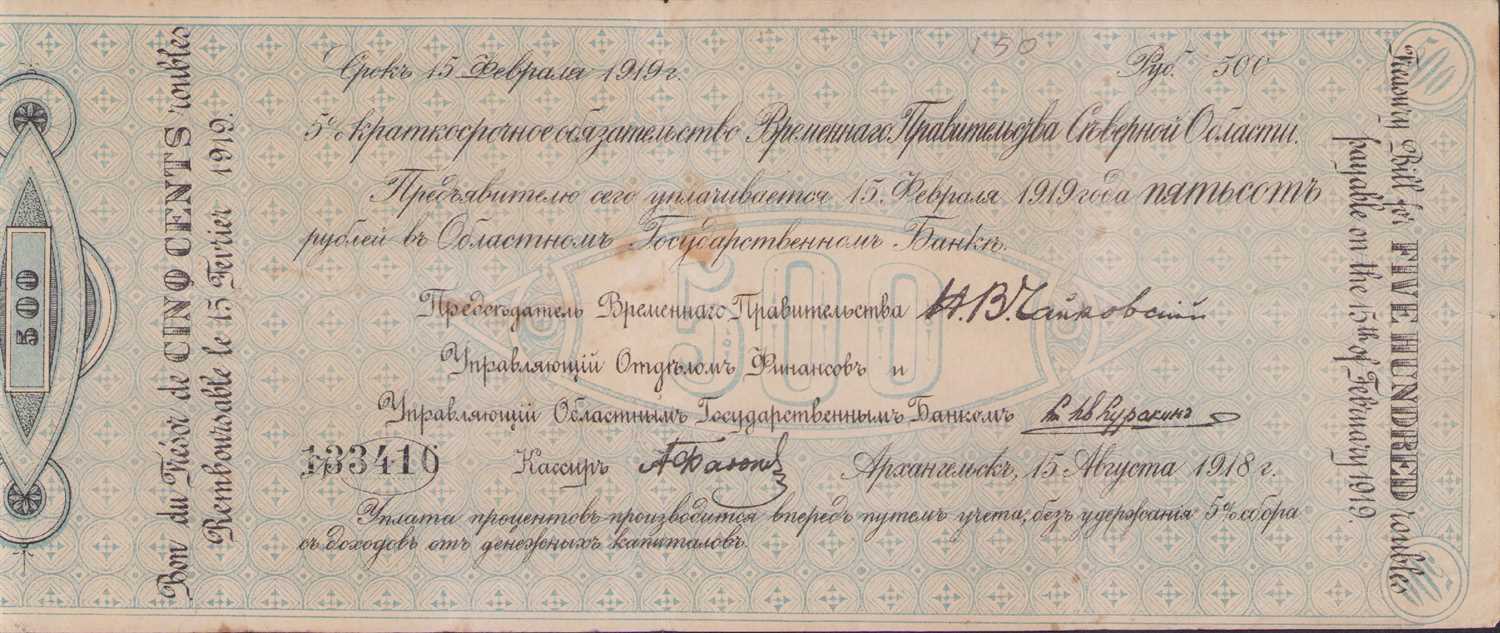 150
Срокъ 15 Февраля 1919 г.
Руб. 500
5% краткосрочное обязательство Временнаго Правительства Сѣверной Области.
Предъявителю сего уплачивается 15 Февраля 1919 года пятьсотъ
рублей въ Областномъ Государственномъ Банкѣ.
500
Предсѣдатель Временнаго Правительства Н.В. Чайковскій
Управляющій Отдѣломъ Финансовъ и
Управляющій Областнымъ Государственнымъ Банкомъ Куракинъ
133410 Кассиръ Архангельскъ, 15 Августа 1918 г.
Уплата процентовъ производится впередъ путемъ учета, безъ удержанія 5% сбора
съ доходовъ отъ денежныхъ капиталовъ.
500
Bon du Trésor de CINQ CENTS roubles
Remboursable le 15 Fevrier 1919.
Treasury Bill for FIVE HUNDRED roubles
payable on the 15th of February 1919.